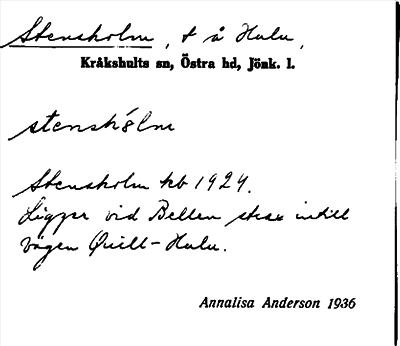 Stensholm, t å Hulu,
Kråkshults sn, Östra hd, Jönk. l.
stenshólm
Stensholm kb 1924.
Ligger vid Bellen strax intill
vägen Quill-Hulu.
Annalisa Anderson 1936